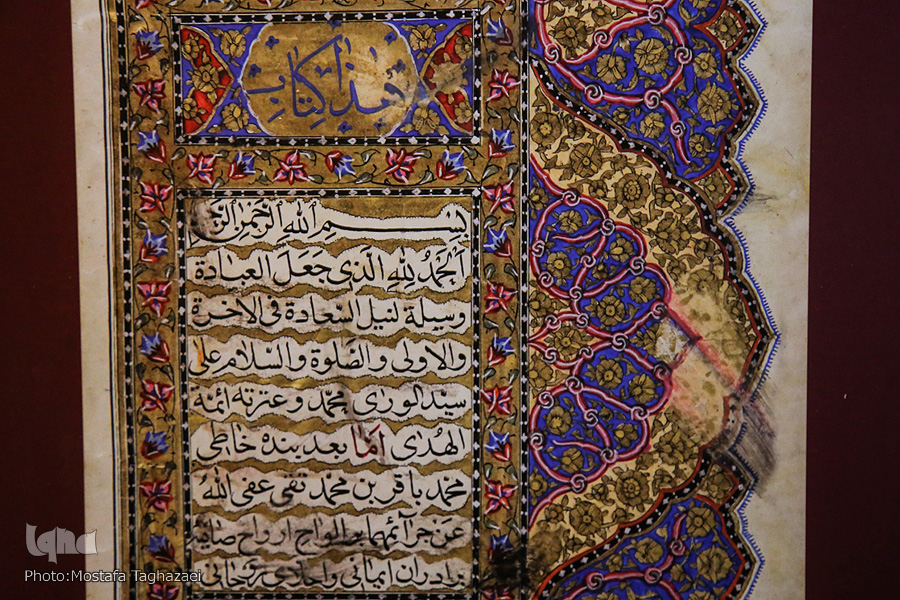 هذا كتاب
بِسْمِ اللهِ الرَّحْمنِ الرَّحیم
اَلْحَمْدُ لِلّهِ الَّذی جَعَلَ العِبادَة
وَسیلَة لنیل السَّعادة فی الاخرة
والاولی والصَّلوة والسَّلام علی
سیّد الوری محمّد وعترته ائمة
الهُدی امّا بعد بنده خاطی
محمّد باقر بن محمّد تقی عفی اللهُ
عن جرآئمهما بر الواح ارواح صافیه
برادران ایمانی و اخلای روحانی
iqna
Photo:Mostafa Taghazaei